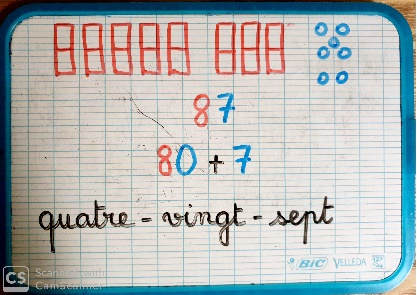 87
80 + 7
quatre - vingt - sept
BIC VELLEDA
CS Scanned with CamScanner